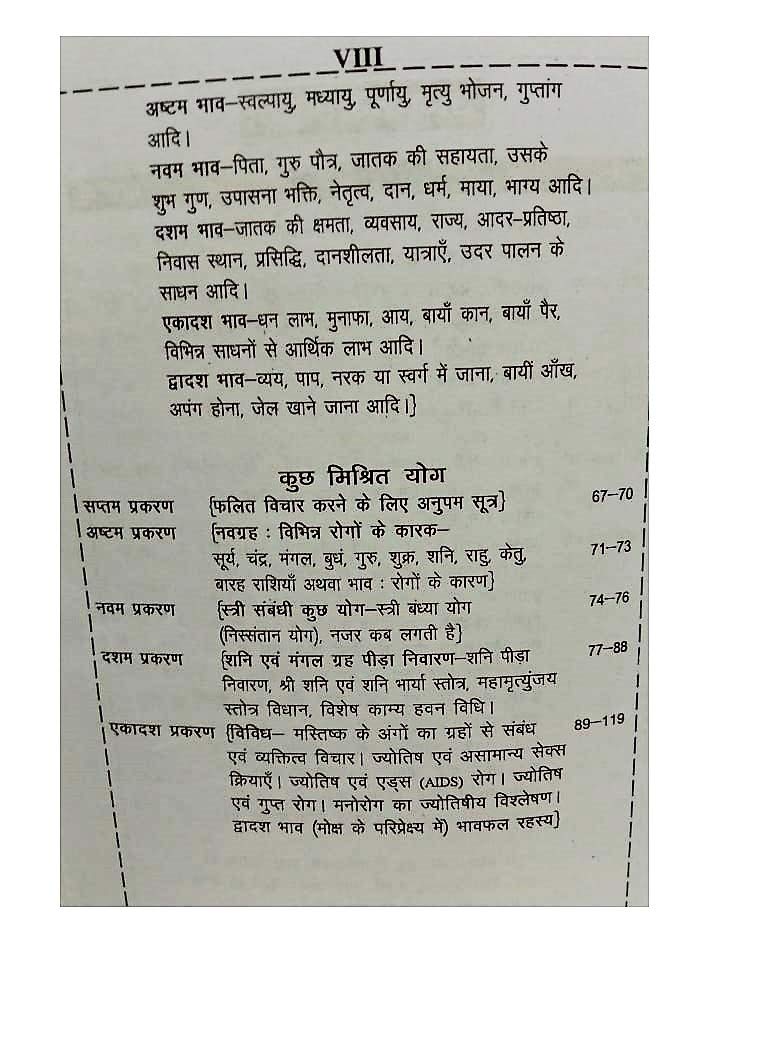 VIII
अष्टम भाव–स्वल्पायु, मध्यायु, पूर्णायु, मृत्यु भोजन, गुप्तांग
आदि।
नवम भाव–पिता, गुरु पौत्र, जातक की सहायता, उसके
शुभ गुण, उपासना भक्ति, नेतृत्व, दान, धर्म, माया, भाग्य आदि।
दशम भाव–जातक की क्षमता, व्यवसाय, राज्य, आदर-प्रतिष्ठा,
निवास स्थान, प्रसिद्धि, दानशीलता, यात्राएँ, उदर पालन के
साधन आदि।
एकादश भाव–धन लाभ, मुनाफा, आय, बायाँ कान, बायाँ पैर,
विभिन्न साधनों से आर्थिक लाभ आदि।
द्वादश भाव–व्यय, पाप, नरक या स्वर्ग में जाना, बायीं आँख,
अपंग होना, जेल खाने जाना आदि।}
कुछ मिश्रित योग
सप्तम प्रकरण {फलित विचार करने के लिए अनुपम सूत्र} 67–70
अष्टम प्रकरण {नवग्रह : विभिन्न रोगों के कारक–
सूर्य, चंद्र, मंगल, बुध, गुरु, शुक्र, शनि, राहु, केतु, 71–73
बारह राशियाँ अथवा भाव : रोगों के कारण}
नवम प्रकरण {स्त्री संबंधी कुछ योग–स्त्री बंध्या योग 74–76
(निस्संतान योग), नजर कब लगती है}
दशम प्रकरण {शनि एवं मंगल ग्रह पीड़ा निवारण–शनि पीड़ा 77–88
निवारण, श्री शनि एवं शनि भार्या स्तोत्र, महामृत्युंजय
स्तोत्र विधान, विशेष काम्य हवन विधि।
एकादश प्रकरण {विविध– मस्तिष्क के अंगों का ग्रहों से संबंध 89–119
एवं व्यक्तित्व विचार। ज्योतिष एवं असामान्य सेक्स
क्रियाएँ। ज्योतिष एवं एड्स (AIDS) रोग। ज्योतिष
एवं गुप्त रोग। मनोरोग का ज्योतिषीय विश्लेषण।
द्वादश भाव (मोक्ष के परिप्रेक्ष्य में) भावफल रहस्य}